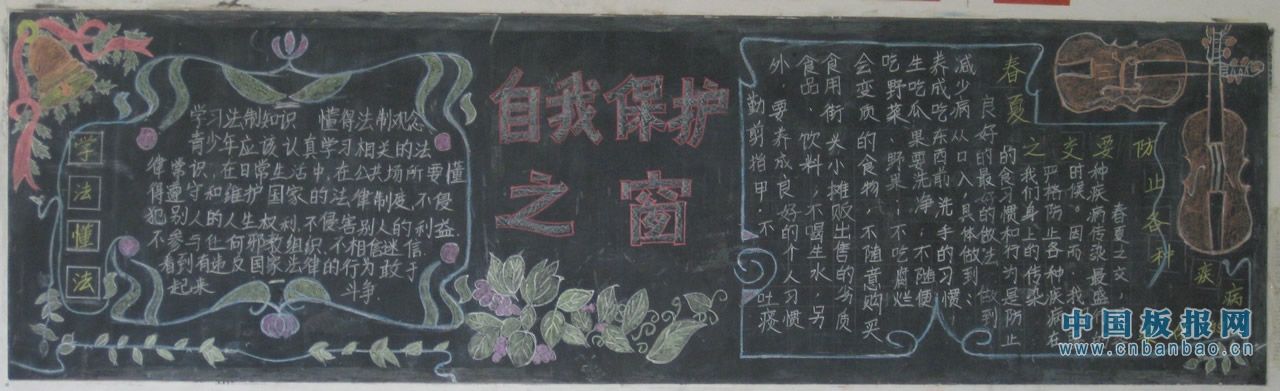 学法懂法
学习法制知识 懂得法制观念
青少年应该认真学习相关的法
律常识,在日常生活中,在公共场所要懂
得遵守和维护国家的法律制度,不侵
犯别人的人生权利,不侵害别人的利益.
不参与任何邪教组织,不相信迷信,
看到有违反国家法律的行为敢于
起来 斗争.
自我保护
之窗
春夏之交要防止各种疾病
春夏之交,
种疾病传染最盛
时候。因而,我
严格防止各种疾病在
我们身上的传染
良好的
的食习惯和行为是防止
减少病从口入,具体做到:
养成吃东西前洗手的习惯;
生吃瓜果要洗净,不随便
吃野菜、野果;不吃腐烂
会变质的食物,不随意购买
食用街头小摊贩出售的劣质
食品、饮料,不喝生水,另
外,要养成良好的个人习惯
勤剪指甲,不 吐痰
中国板报网
www.cnbanbao.cn